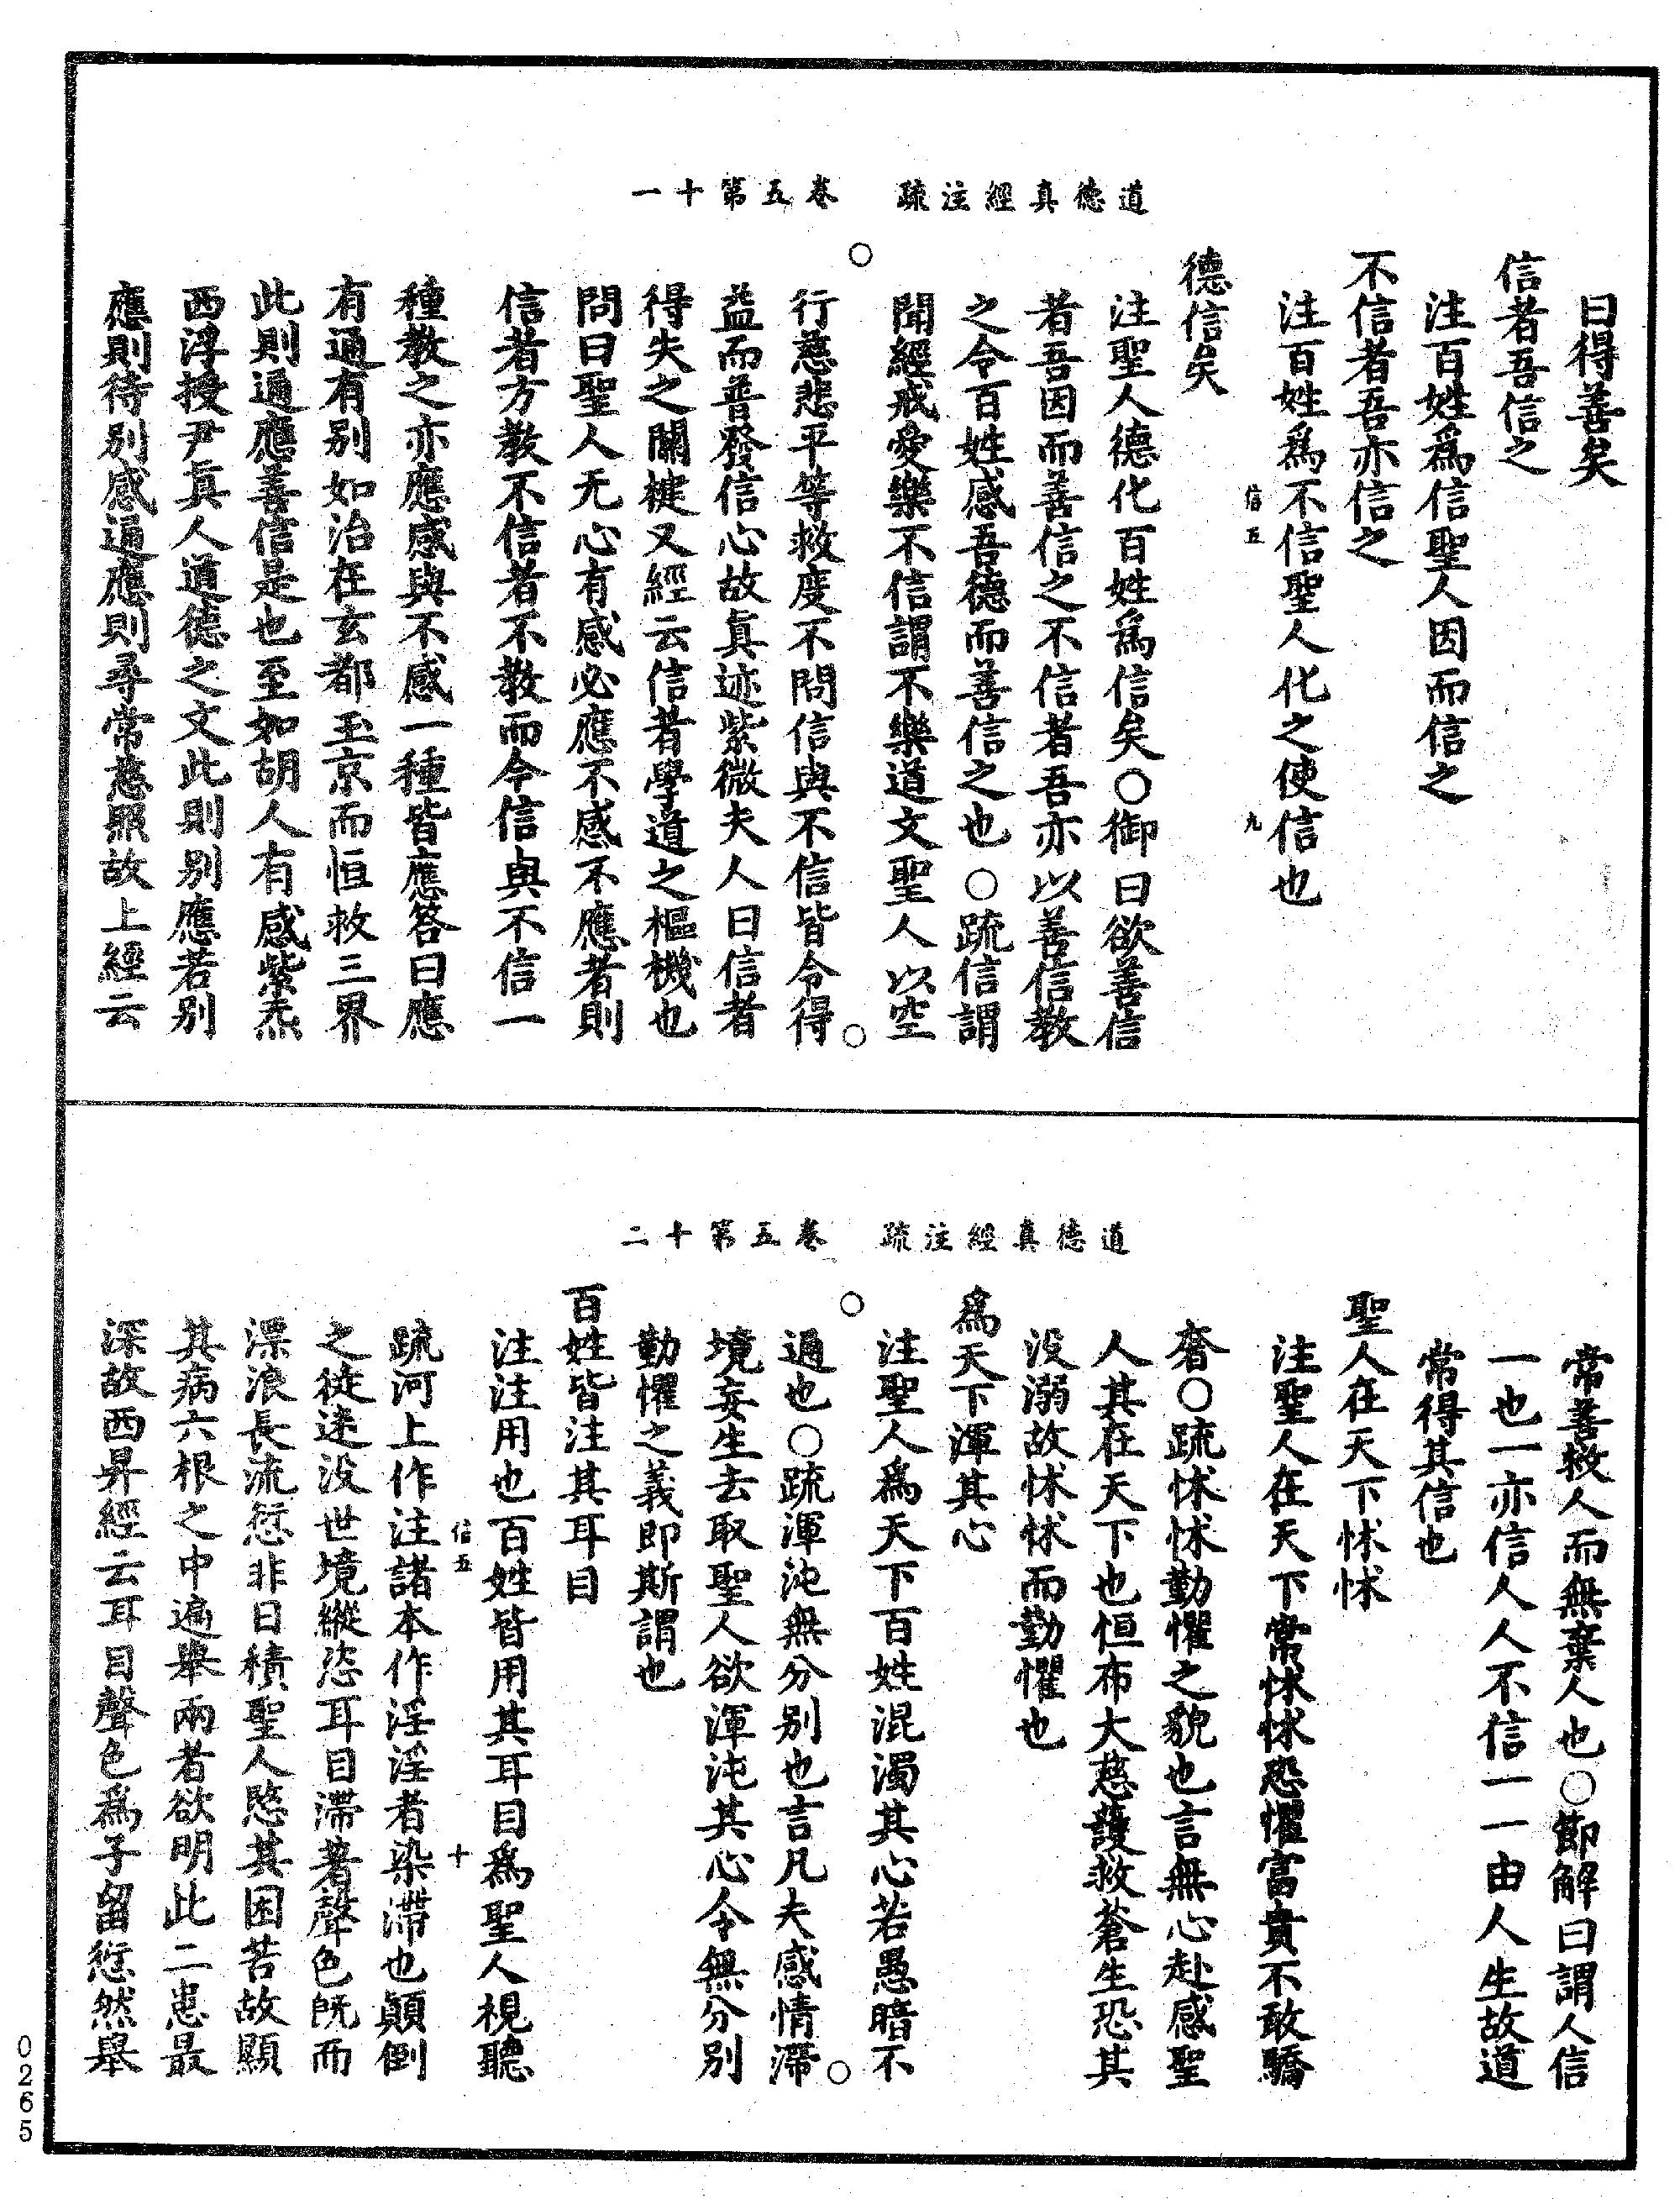 道德真經注疏　卷五第十一
曰得善矣
信者吾信之
注百姓爲信聖人因而信之
不信者吾亦信之
注百姓爲不信聖人化之使信也
信五　九
德信矣
注聖人德化百姓爲信矣○御曰欲善信
者吾因而善信之不信者吾亦以善信教
之令百姓感吾德而善信之也○疏信謂
聞經戒愛樂不信謂不樂道文聖人以空
行慈悲平等救度不問信與不信皆令得
益而普發信心故真迹紫微夫人曰信者
得失之關楗又經云信者學道之樞機也
問曰聖人无心有感必應不感不應者則
信者方教不信者不教而今信與不信一
種教之亦應感與不感一種皆應答曰應
有通有別如治在玄都玉京而恒救三界
此則通應善信是也至如胡人有感紫炁
西浮授尹真人道德之文此則別應若別
應則待別感通應則尋常慈照故上經云
道德真經注疏　卷五第十二
常善救人而無棄人也○節解曰謂人信
一也一亦信人人不信一一由人生故道
常得其信也
聖人在天下怵怵
注聖人在天下常怵怵恐懼富貴不敢驕
奢○疏怵怵勤懼之貌也言無心赴感聖
人其在天下也恒布大慈護救蒼生恐其
没溺故怵怵而勤懼也
爲天下渾其心
注聖人爲天下百姓混濁其心若愚暗不
通也○疏渾沌無分別也言凡夫感情滯
境妄生去取聖人欲渾沌其心令無分別
勤懼之義即斯謂也
百姓皆注其耳目
注注用也百姓皆用其耳目爲聖人視聽
信五　十
疏河上作注諸本作淫淫者染滯也顛倒
之徒迷没世境縱恣耳目滯著聲色既而
漂浪長流愆非日積聖人愍其困苦故顯
其病六根之中遍舉兩者欲明此二患最
深故西昇經云耳目聲色爲子留愆然舉
0265